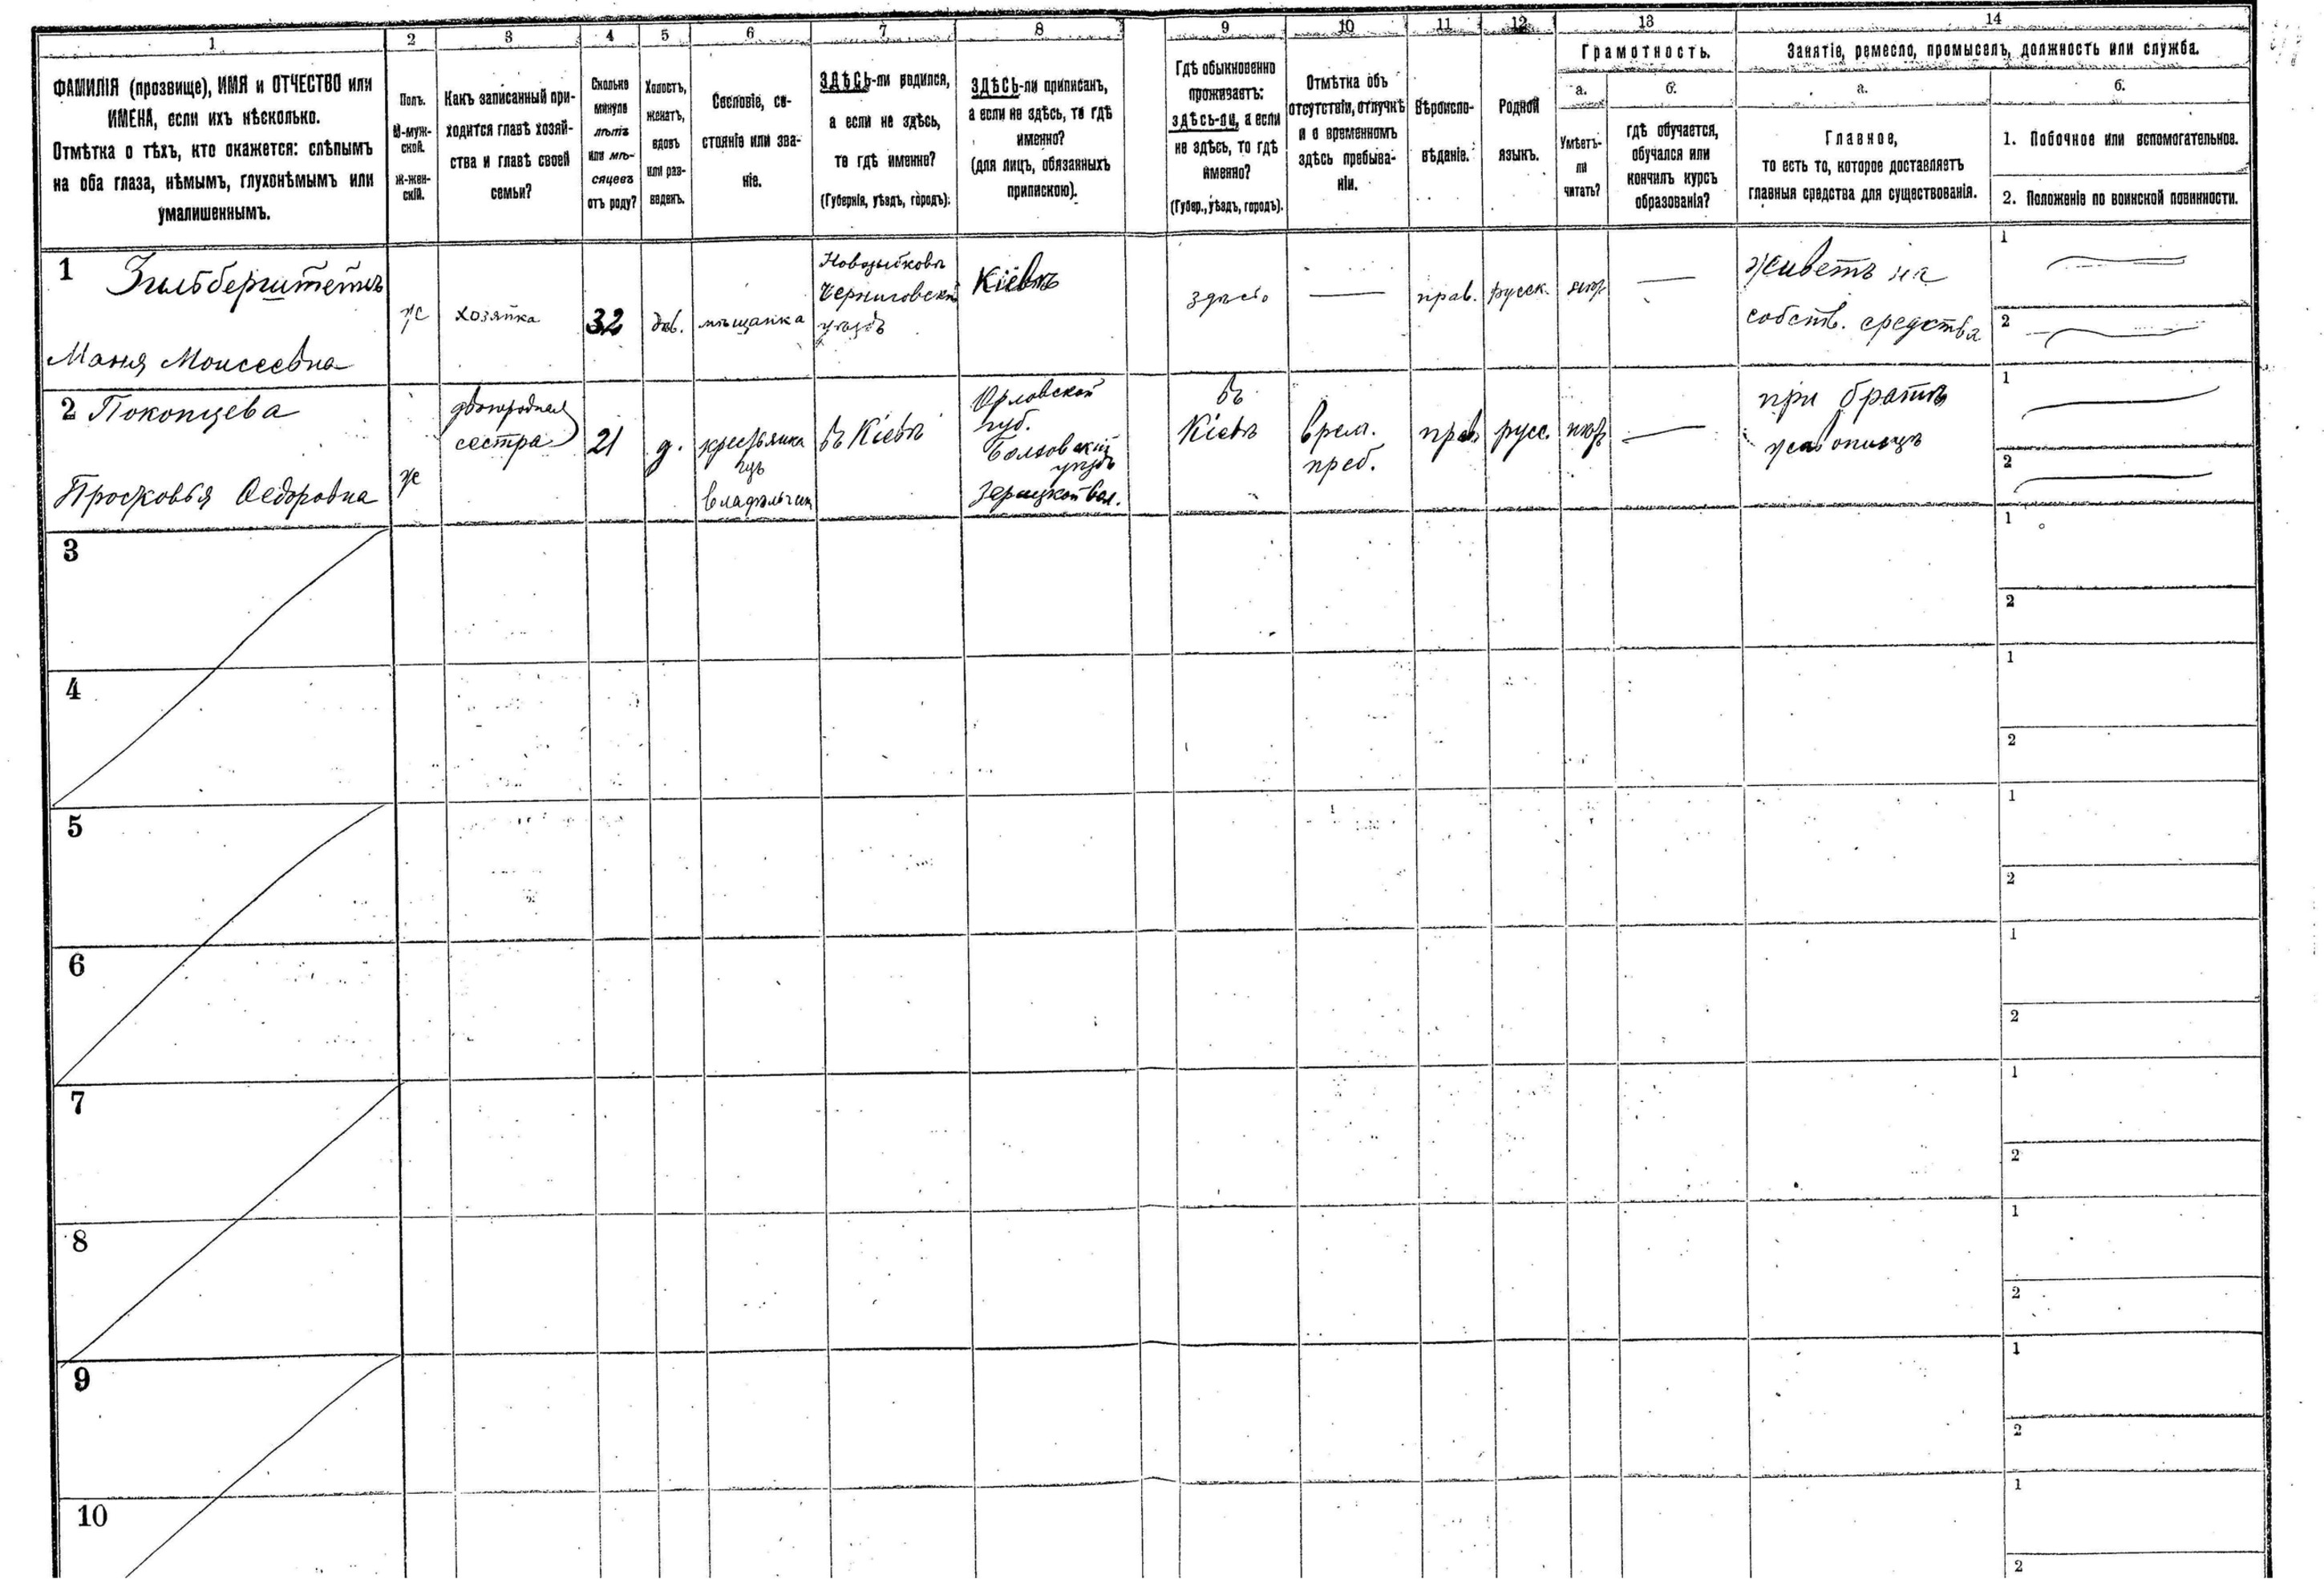 1 2 3 4 5 6 7 8 9 10 11 12 13 14
ФАМИЛІЯ (прозвище), ИМЯ и ОТЧЕСТВО или
ИМЕНА, если ихъ нѣсколько.
Отмѣтка о тѣхъ, кто окажется: слѣпымъ
на оба глаза, нѣмымъ, глухонѣмымъ или
умалишеннымъ.
Полъ.
М-муж-
ской.
Ж-жен-
скій.
Какъ записанный при-
ходится главѣ хозяй-
ства и главѣ своей
семьи?
Сколько
минуло
лѣтъ
или мѣ-
сяцевъ
отъ роду?
Холостъ,
женатъ,
вдовъ
или раз-
веденъ.
Сословіе, со-
стояніе или зва-
ніе.
ЗДѢСЬ-ли родился,
а если не здѣсь,
то гдѣ именно?
(Губернія, уѣздъ, городъ).
ЗДѢСЬ-ли приписанъ,
а если не здѣсь, то гдѣ
именно?
(для лицъ, обязанныхъ
припискою).
Гдѣ обыкновенно
проживаетъ:
здѣсь-ли, а если
не здѣсь, то гдѣ
именно?
(Губер., уѣздъ, городъ).
Отмѣтка объ
отсутствіи, отлучкѣ
и о временномъ
здѣсь пребыва-
ніи.
Вѣроиспо-
вѣданіе.
Родной
языкъ.
Грамотность.
а.
Умѣетъ-
ли
читать?
б.
гдѣ обучается,
обучался или
кончилъ курсъ
образованія?
Занятіе, ремесло, промыселъ, должность или служба.
а.
Главное,
то есть то, которое доставляетъ
главныя средства для существованія.
б.
1. Побочное или вспомогательное.
2. Положеніе по воинской повинности.
1 Зильберштетъ
Маня Моисеевна
ж
хозяйка
32
дѣв.
мѣщанка
Новозыбковъ
Черниговск.
уѣздъ
Кіевъ
здѣсь
—
прав.
русск.
—
Живетъ на
собств. средства
1
2
2
Прасковья Федоровна
ж
двоюродная
сестра
21
д.
крестьянка
изъ
въ Кіевѣ
Орловской
губ.
Болховскій
уѣздъ
въ
Кіевѣ
врем.
преб.
прав.
русс.
—
при братѣ
живописцѣ
1
2
3
1
2
4
1
2
5
1
2
6
1
2
7
1
2
8
1
2
9
1
2
10
1
2